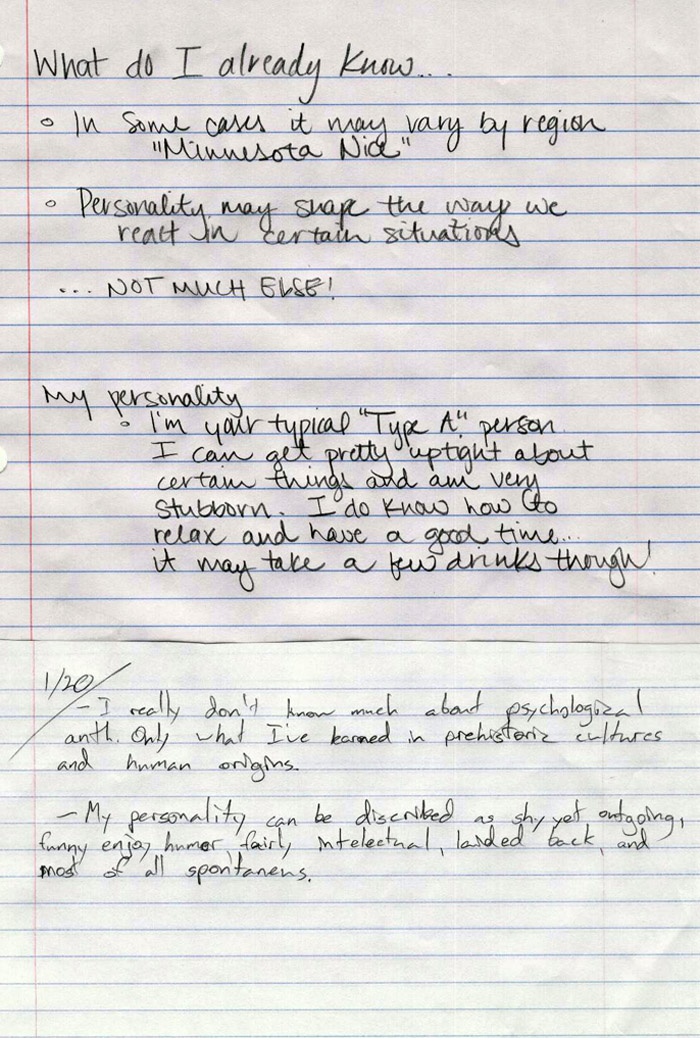 What do I already know...
o In some cases it may vary by region
"Minnesota Nice"
o Personality may shape the way we
react in certain situations
... NOT MUCH ELSE!
My personality
o I'm your typical "Type A" person.
I can get pretty uptight about
certain things and am very
stubborn. I do know how to
relax and have a good time...
it may take a few drinks though!
1/20
- I really don't know much about psychological
anth. Only what I've learned in prehistoric cultures
and human origins.
- My personality can be discribed as shy yet outgoing,
funny enjoy humor, fairly intelectual, laided back, and
most of all spontanens.